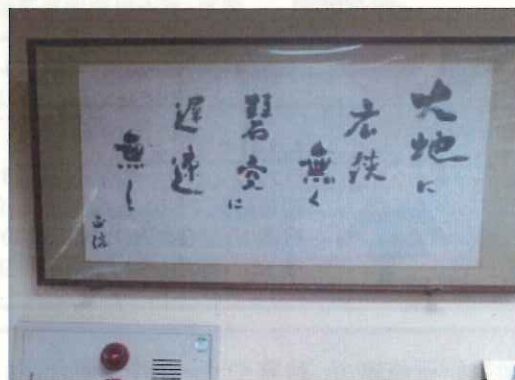 大地に
広狭
無く
碧空に
遅速
無し